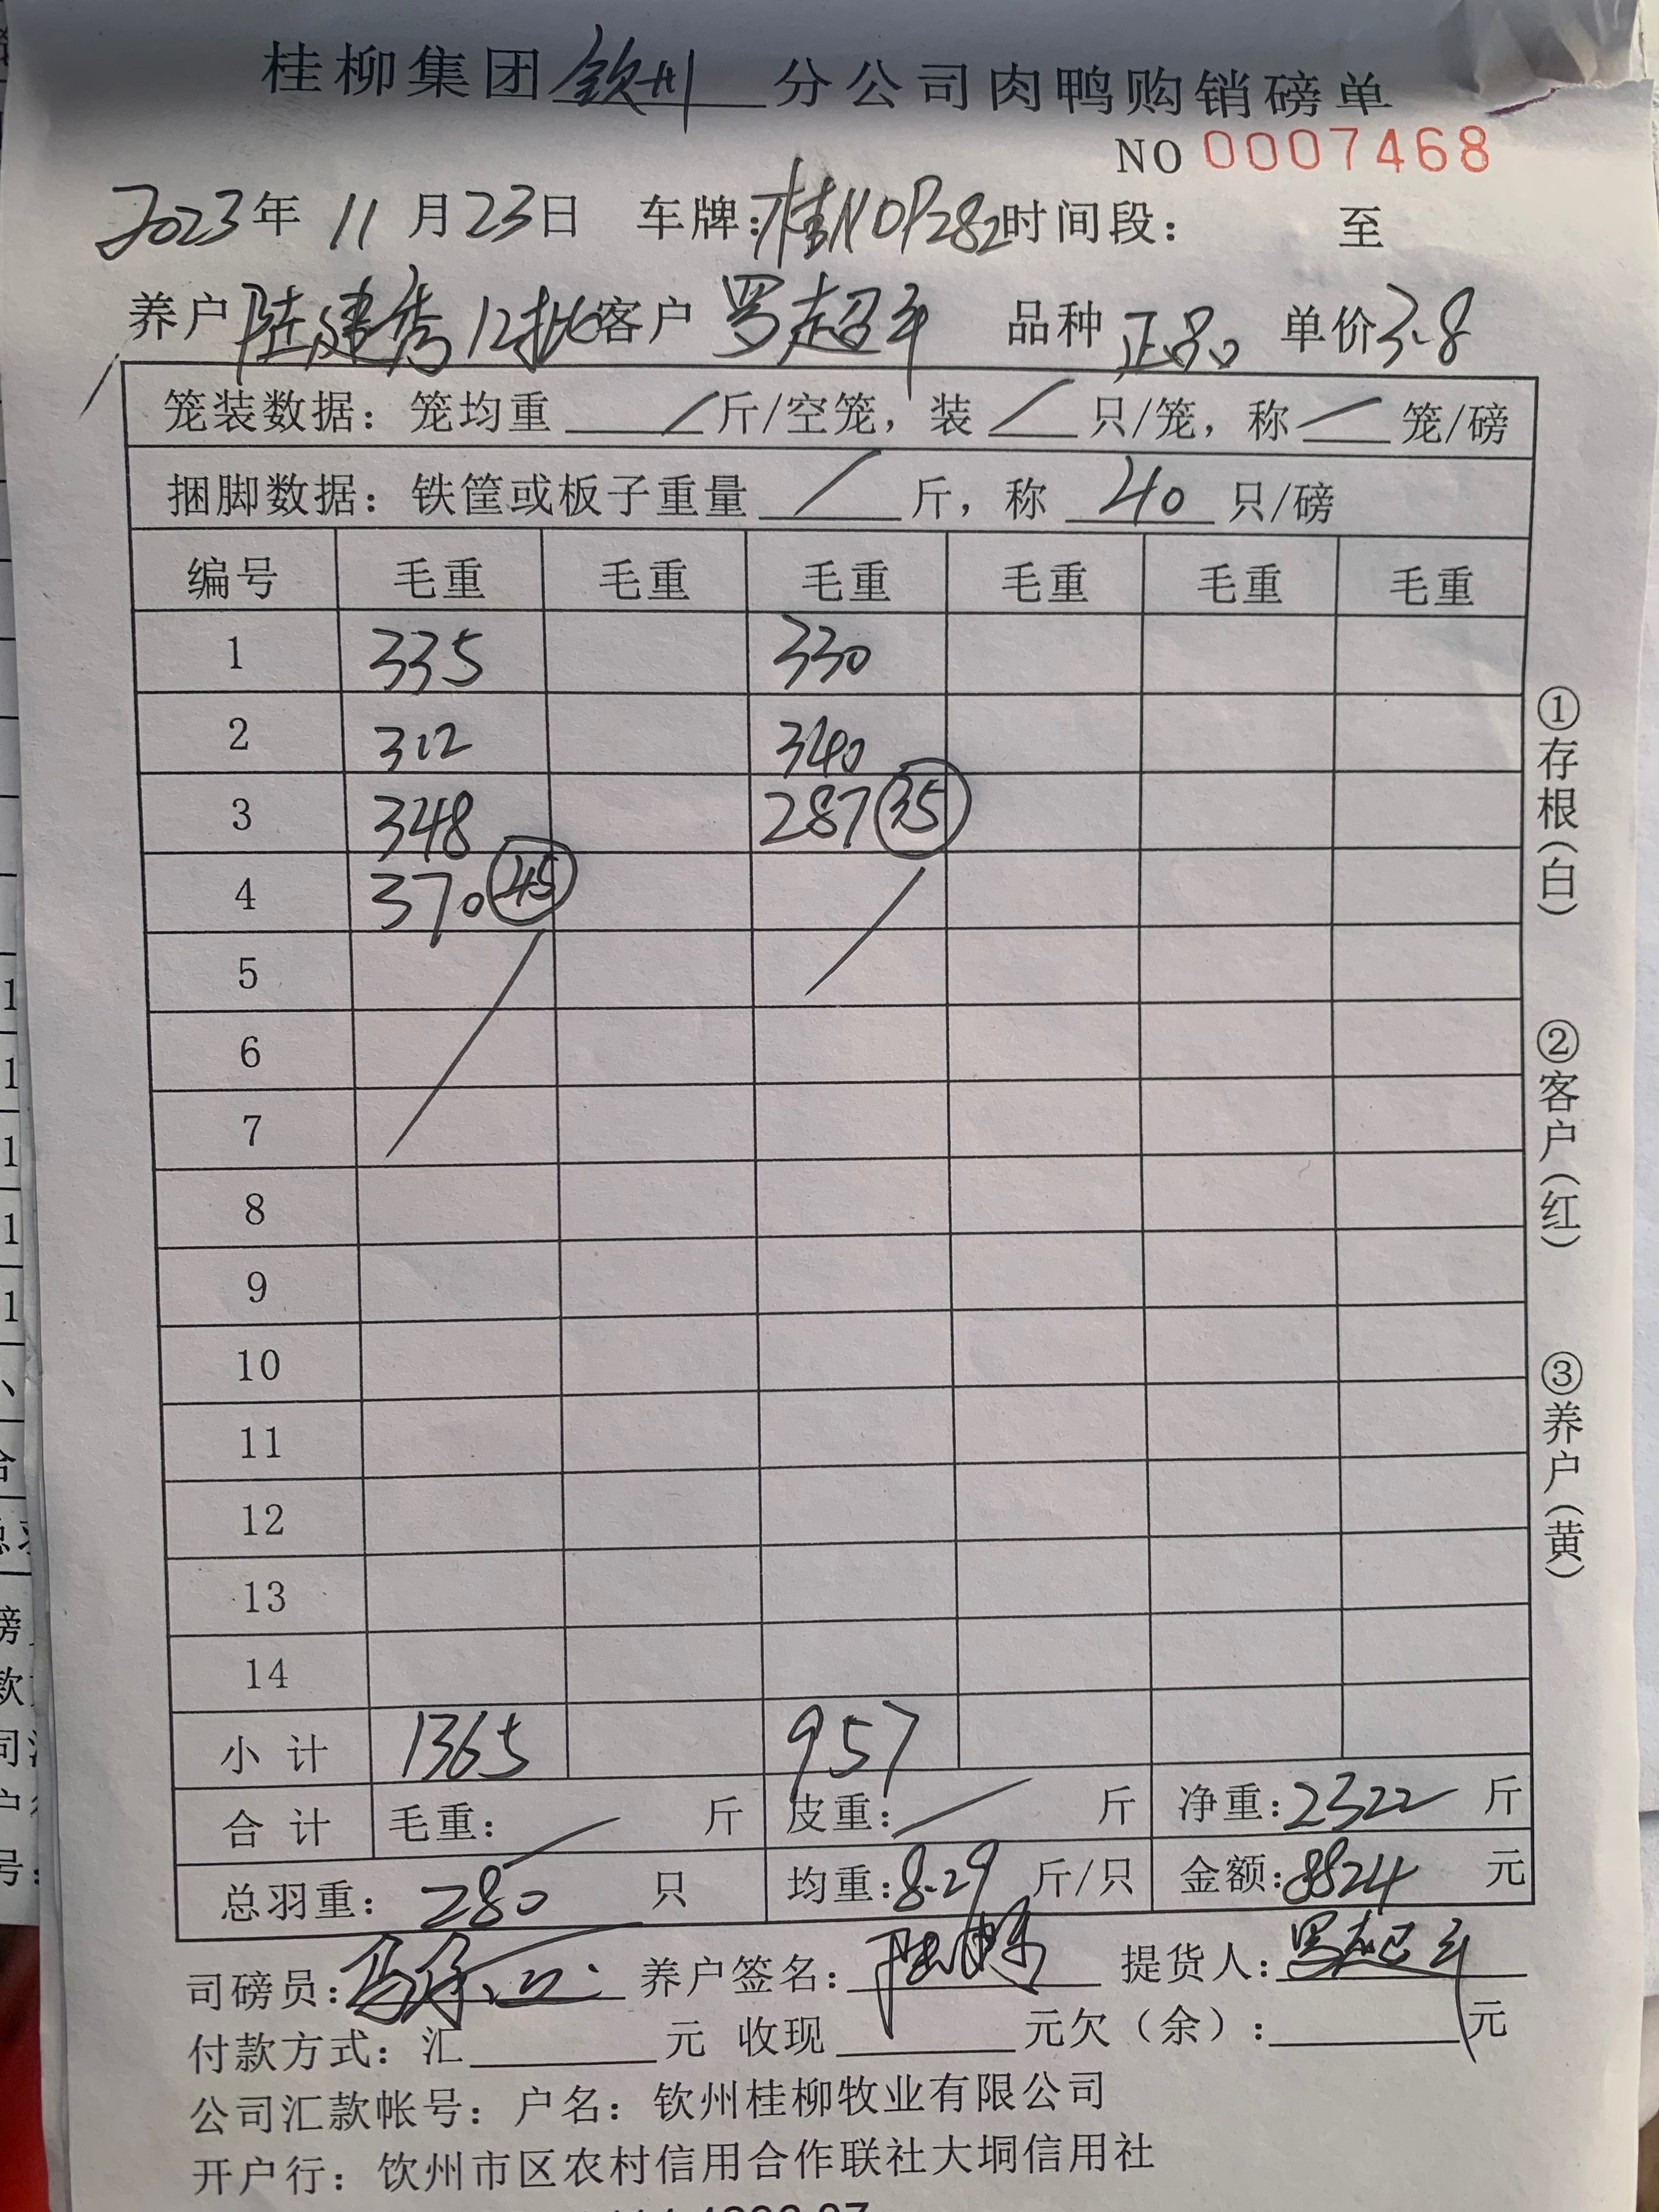 桂柳集团钦州分公司肉鸭购销磅单
NO 0007468
2023年 11月23日 车牌:桂N0P282时间段: 至
养户陆建秀12批客户罗超平 品种正品 单价3.8
笼装数据: 笼均重 / 斤/空笼, 装 / 只/笼, 称 / 笼/磅
捆脚数据: 铁筐或板子重量 / 斤, 称 40 只/磅
编号 毛重 毛重 毛重 毛重 毛重 毛重
1 335 330
2 312 340
3 348 287 35
4 370 45
5
6
7
8
9
10
11
12
13
14
小计 1365 957
合计 毛重: / 斤 皮重: / 斤 净重:2322 斤
总羽重: 280 只 均重:8.29 斤/只 金额:8824 元
司磅员: 养户签名: 提货人:罗超平
付款方式: 汇 元 收现 元欠(余): 元
公司汇款帐号: 户名: 钦州桂柳牧业有限公司
开户行: 钦州市区农村信用合作联社大垌信用社
①存根(白)
②客户(红)
③养户(黄)